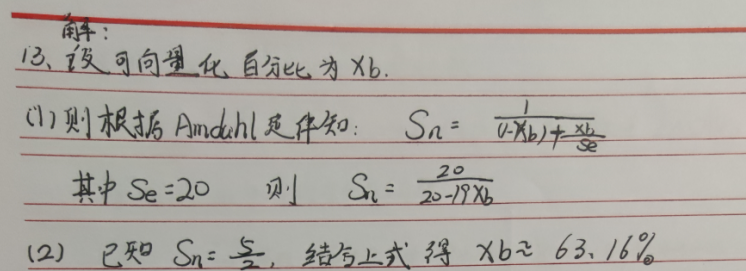 解:
13、设可向量化百分比为Xb.
(1)则根据Amdahl定律知: Sn = 1/((1-Xb)+Xb/Se)
其中 Se=20 则 Sn = 20/(20-19Xb)
(2) 已知 Sn=5/2, 结合上式得 Xb≈63.16%